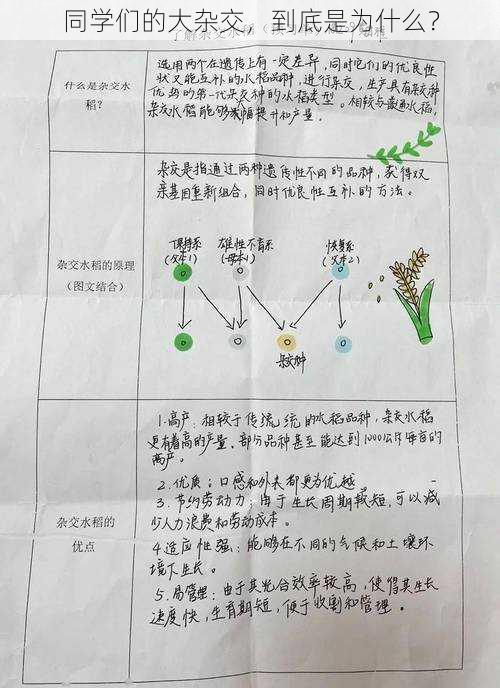 同学们的大杂交，到底是为什么？
什么是杂交水
稻？
选用两个在遗传上有一定差异，同时它们的优良性
状又能互补的水稻品种，进行杂交，生产具有杂交种
优势的第一代杂交种的水稻类型。相较与普通水稻，
杂交水稻能够大幅提升和产量。
杂交水稻的原理
（图文结合）
杂交是指通过两种遗传性不同的品种，获得双
亲基因重新组合，同时优良性互补的方法。
保持系
（父本1）
雄性不育系
（母本1）
恢复系
（父本2）
杂交种
杂交水稻的
优点
1.高产：相较于传统统的水稻品种，杂交水稻
更有着高的产量，部分品种甚至能达到1000公斤每亩的
高产。
2.优质：口感和外来都更为优越
3.节约劳动力：由于生长周期较短，可以减
少人力浪费和劳动成本。
4.适应性强：能够在不同的气候和土壤环
境下生长。
5.易管理：由于其光合效率较高，使得其生长
速度快，生育期短，便于收割和管理。